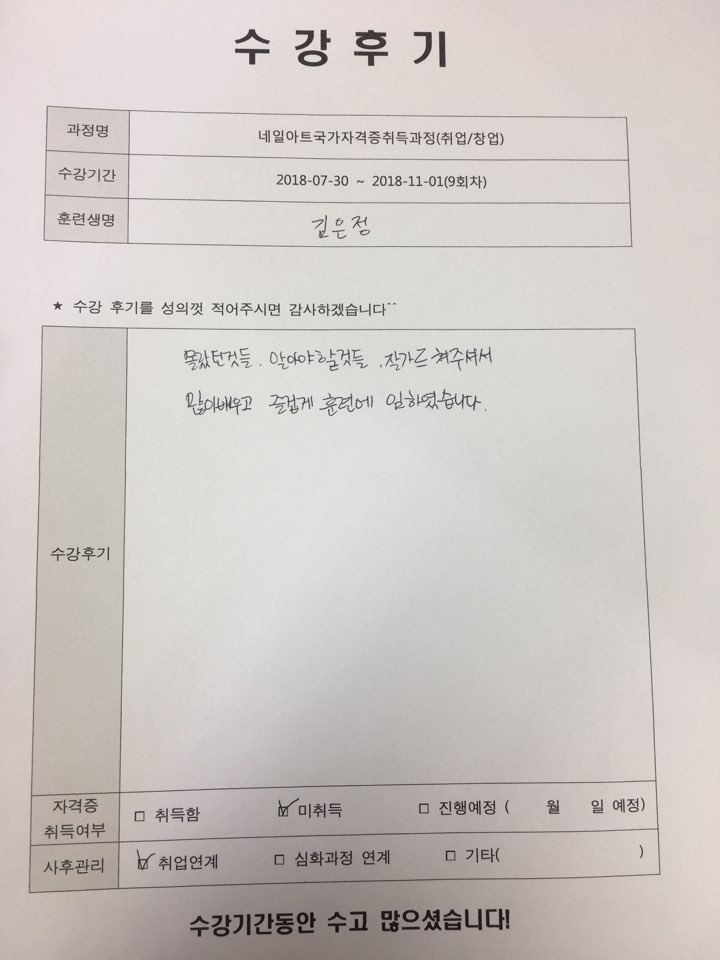 수강후기
과정명 네일아트국가자격증취득과정(취업/창업)
수강기간 2018-07-30 ~ 2018-11-01(9회차)
훈련생명 김은정
★ 수강 후기를 성의껏 적어주시면 감사하겠습니다^^
몰랐던것들. 알아야할것들. 잘가르쳐주셔서
많이배우고 즐겁게 훈련에 임하였습니다.
수강후기
자격증 취득여부 □ 취득함 ☑ 미취득 □ 진행예정 ( 월 일 예정)
사후관리 ☑ 취업연계 □ 심화과정 연계 □ 기타( )
수강기간동안 수고 많으셨습니다!